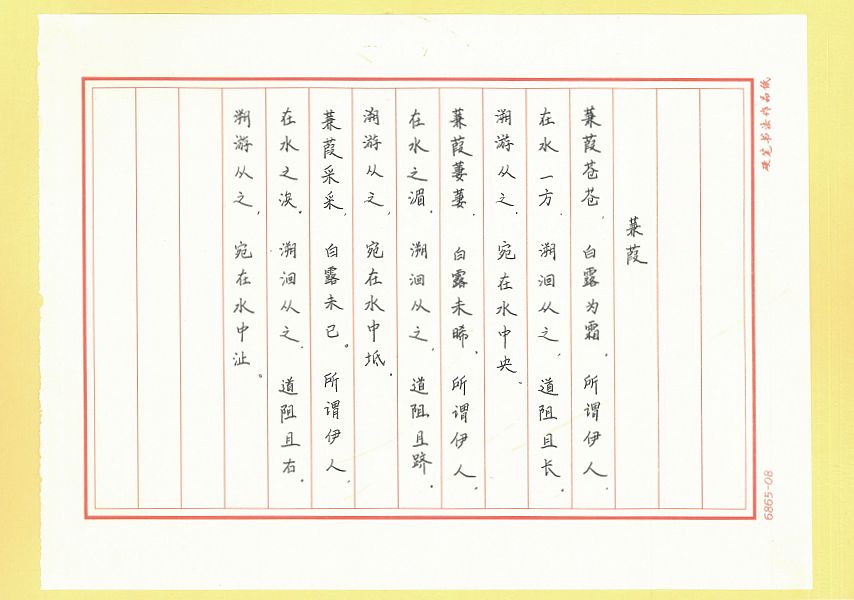 硬笔书法作品纸
6865-08
蒹葭
蒹葭苍苍，白露为霜。所谓伊人，
在水一方。溯洄从之，道阻且长。
溯游从之，宛在水中央。
蒹葭萋萋，白露未晞。所谓伊人，
在水之湄。溯洄从之，道阻且跻。
溯游从之，宛在水中坻。
蒹葭采采，白露未已。所谓伊人，
在水之涘。溯洄从之，道阻且右。
溯游从之，宛在水中沚。